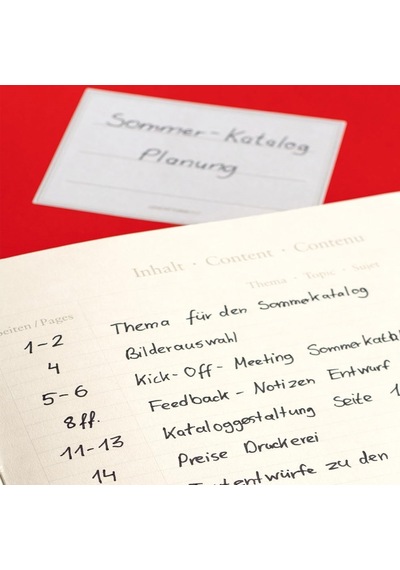 Sommer-Katalog
Planung
Inhalt · Content · Contenu
Seiten / Pages
Thema · Topic · Sujet
1-2 Thema für den Sommekatalog
4 Bilderauswahl
5-6 Kick-Off-Meeting
8ff. Feedback-Notizen Entwurf
11-13 Kataloggestaltung Seite 1
14 Preise Druckerei
zu den